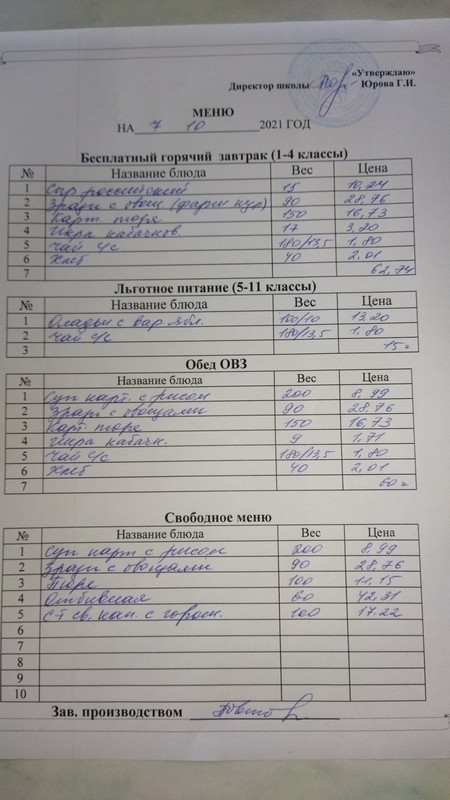 «Утверждаю»
Директор школы Юрова Г.И.
МЕНЮ
НА 7 10 2021 ГОД
Бесплатный горячий завтрак (1-4 классы)
№ Название блюда Вес Цена
1 Сыр российский 15 10,24
2 Зразы с овощ (фарш кур) 90 28,76
3 Карт. пюре 150 16,73
4 Икра кабачков. 17 3,20
5 Чай с/с 180/13,5 1,80
6 Хлеб 40 2,01
7 62,74
Льготное питание (5-11 классы)
№ Название блюда Вес Цена
1 Оладьи с вар ябл. 100/10 13,20
2 Чай с/с 180/13,5 1,80
3 15=
Обед ОВЗ
№ Название блюда Вес Цена
1 Суп карт. с рисом 200 8,99
2 Зразы с овощами 90 28,76
3 Карт. пюре 150 16,73
4 Икра кабачк. 9 1,71
5 Чай с/с 180/13,5 1,80
6 Хлеб 40 2,01
7 60=
Свободное меню
№ Название блюда Вес Цена
1 Суп карт с рисом 200 8,99
2 Зразы с овощами 90 28,76
3 Пюре 100 11,15
4 Отбивная 60 42,31
5 СТ св. кап. с горош. 100 17.22
6
7
8
9
10
Зав. производством